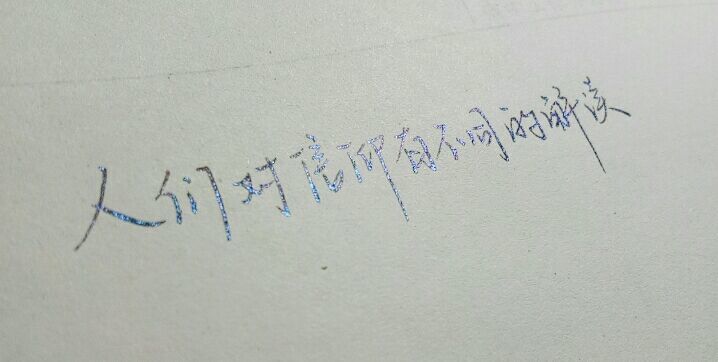 人们对信仰有不同的解读